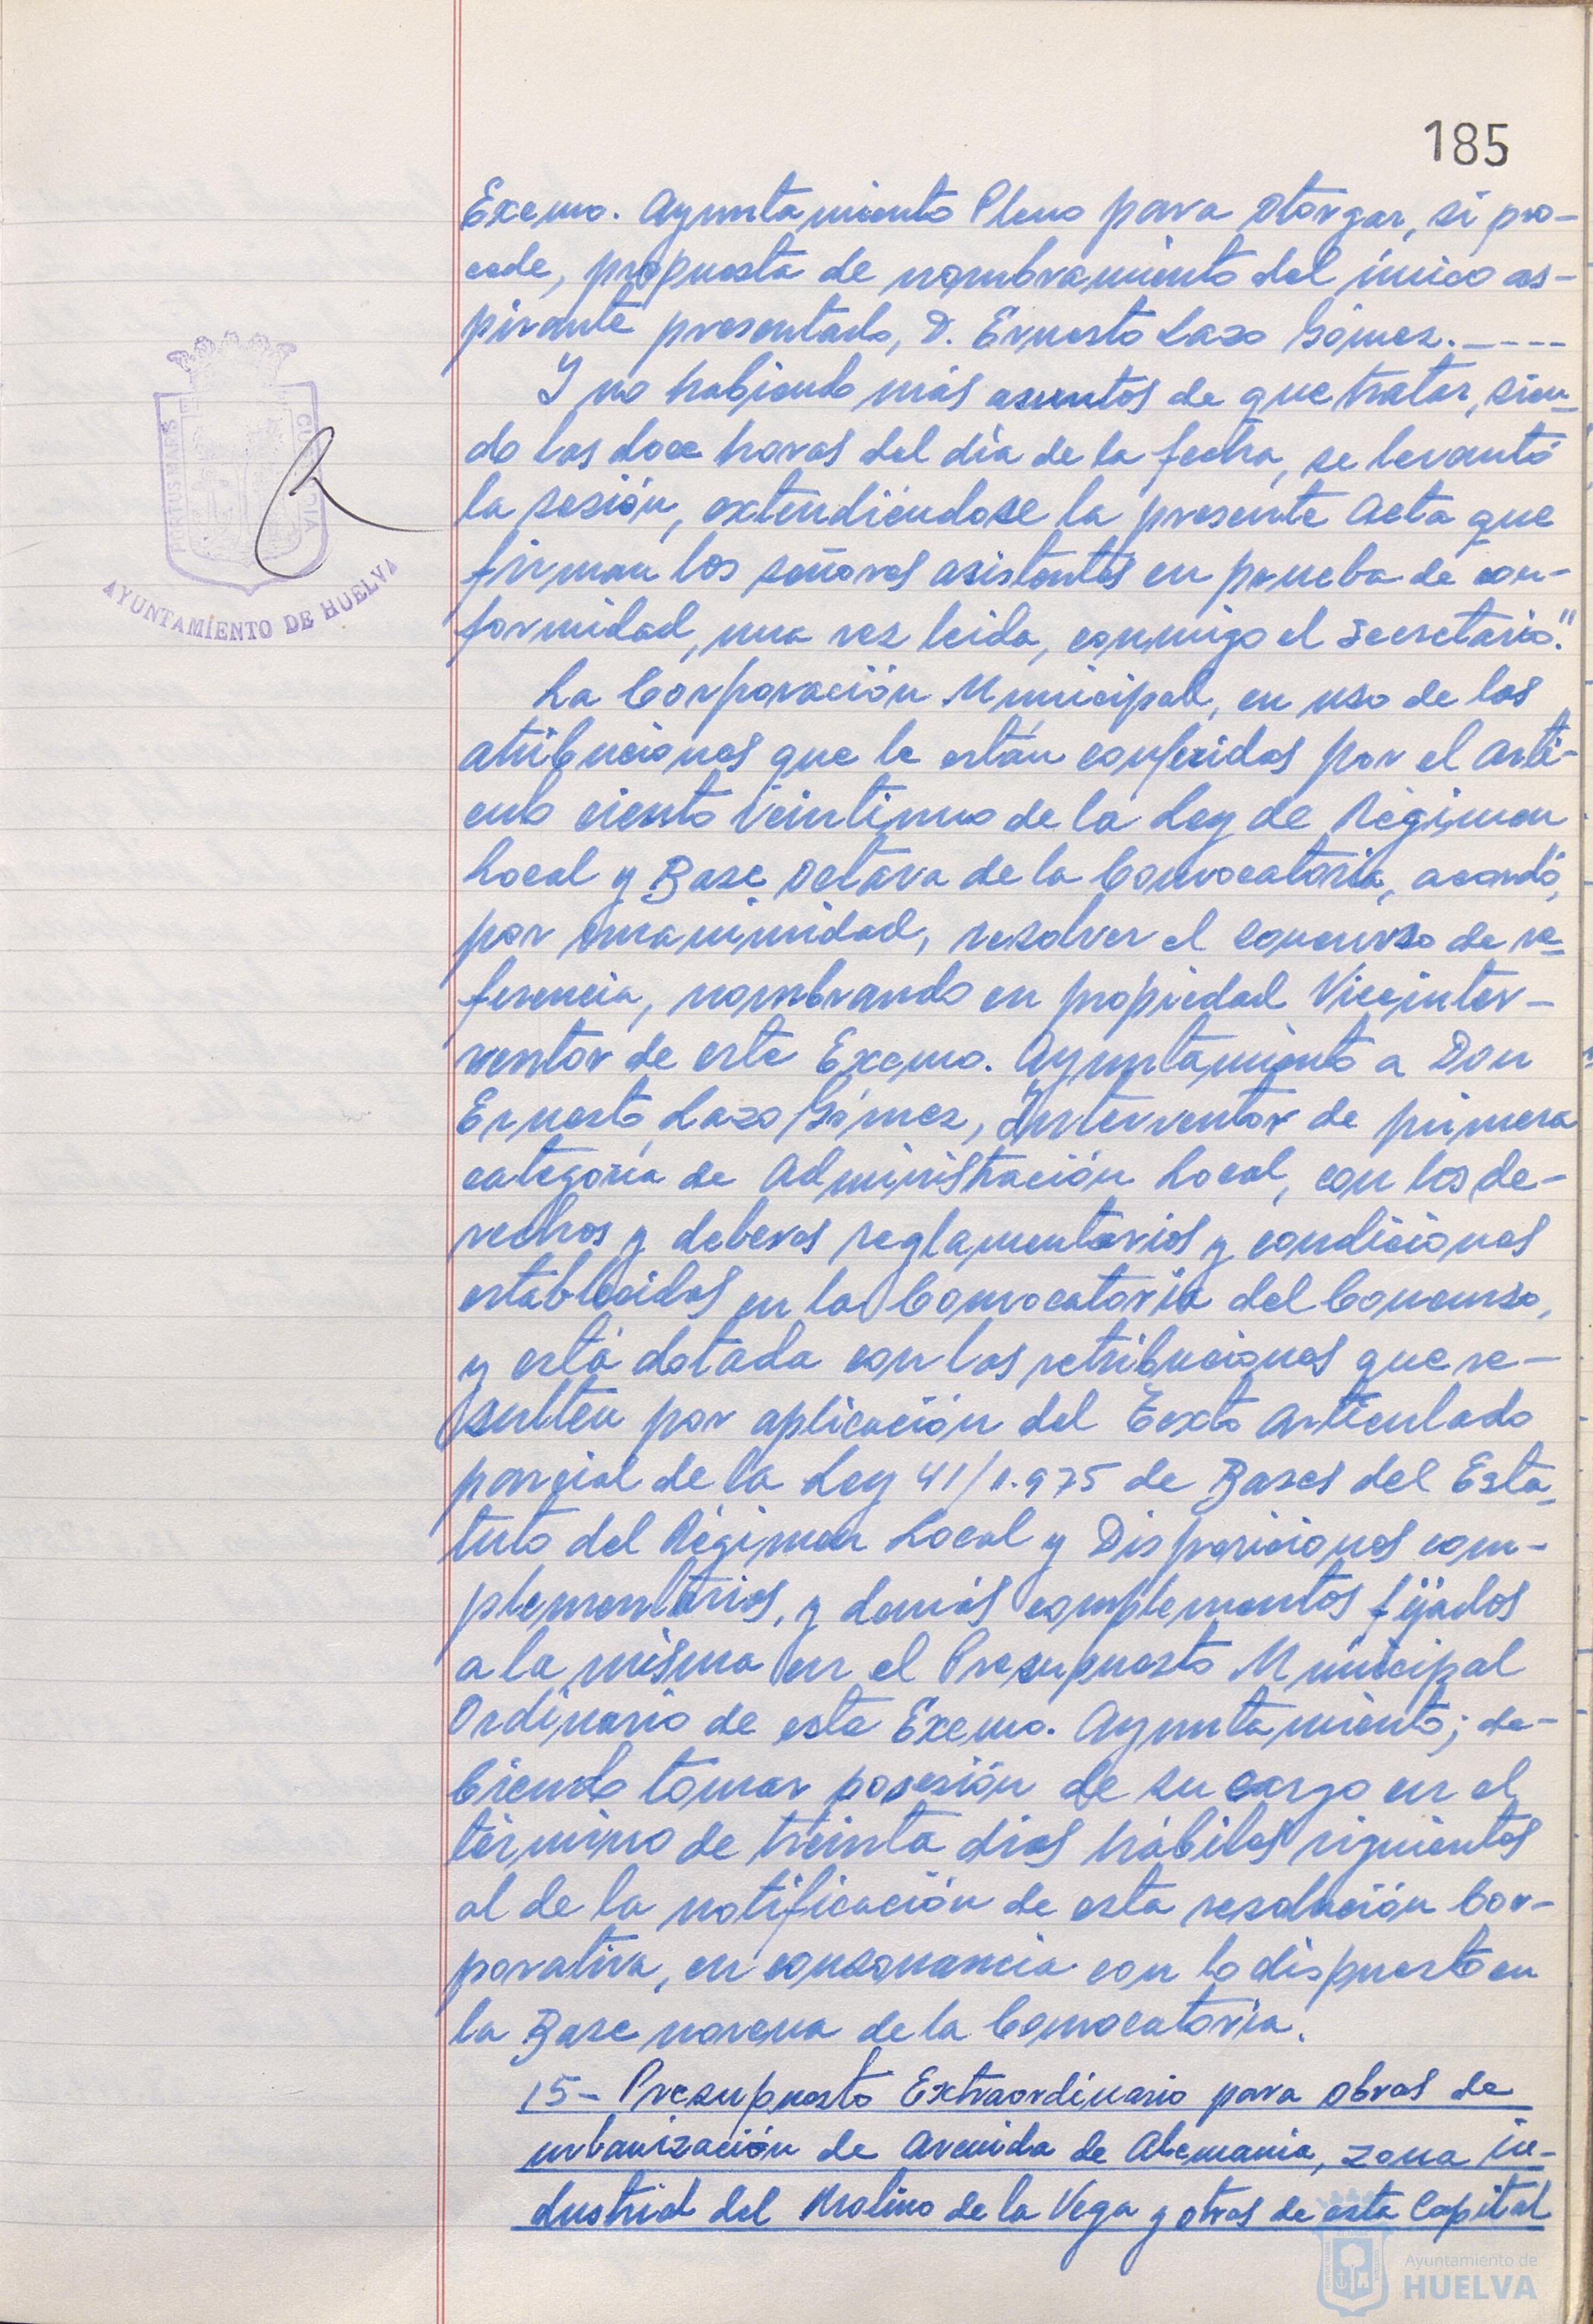 185
Excmo. Ayuntamiento Pleno para otorgar, si pro-
cede, propuesta de nombramiento del único as-
pirante presentado, D. Ernesto Lazo Gómez.----
Y no habiendo más asuntos de que tratar, sien-
do las doce horas del día de la fecha, se levantó
la sesión, extendiéndose la presente Acta que
firman los señores asistentes en prueba de con-
formidad, una vez leida, conmigo el Secretario."
La Corporación Municipal, en uso de las
atribuciones que le están conferidas por el artí-
culo ciento veintiuno de la Ley de Régimen
Local y Base Octava de la Convocatoria, acordó,
por unanimidad, resolver el concurso de re-
ferencia, nombrando en propiedad Viceinter-
ventor de este Excmo. Ayuntamiento a Don
Ernesto Lazo Gómez, Interventor de primera
categoría de Administración Local, con los de-
rechos y deberes reglamentarios y condiciones
establecidas en la Convocatoria del Concurso,
y está dotada con las retribuciones que re-
sulten por aplicación del Texto articulado
parcial de la Ley 41/1.975 de Bases del Esta-
tuto del Régimen Local y Disposiciones com-
plementarias, y demás complementos fijados
a la misma en el Presupuesto Municipal
Ordinario de este Excmo. Ayuntamiento; de-
biendo tomar posesión de su cargo en el
término de treinta dias hábiles siguientes
al de la notificación de esta resolución Cor-
porativa, en consonancia con lo dispuesto en
la Base novena de la Convocatoria.
15- Presupuesto Extraordinario para obras de
urbanización de Avenida de Alemania, zona in-
dustrial del Molino de la Vega y otras de esta Capital
PORTUS MARIS
CUSTODIA
AYUNTAMIENTO DE HUELVA
Ayuntamiento de
HUELVA